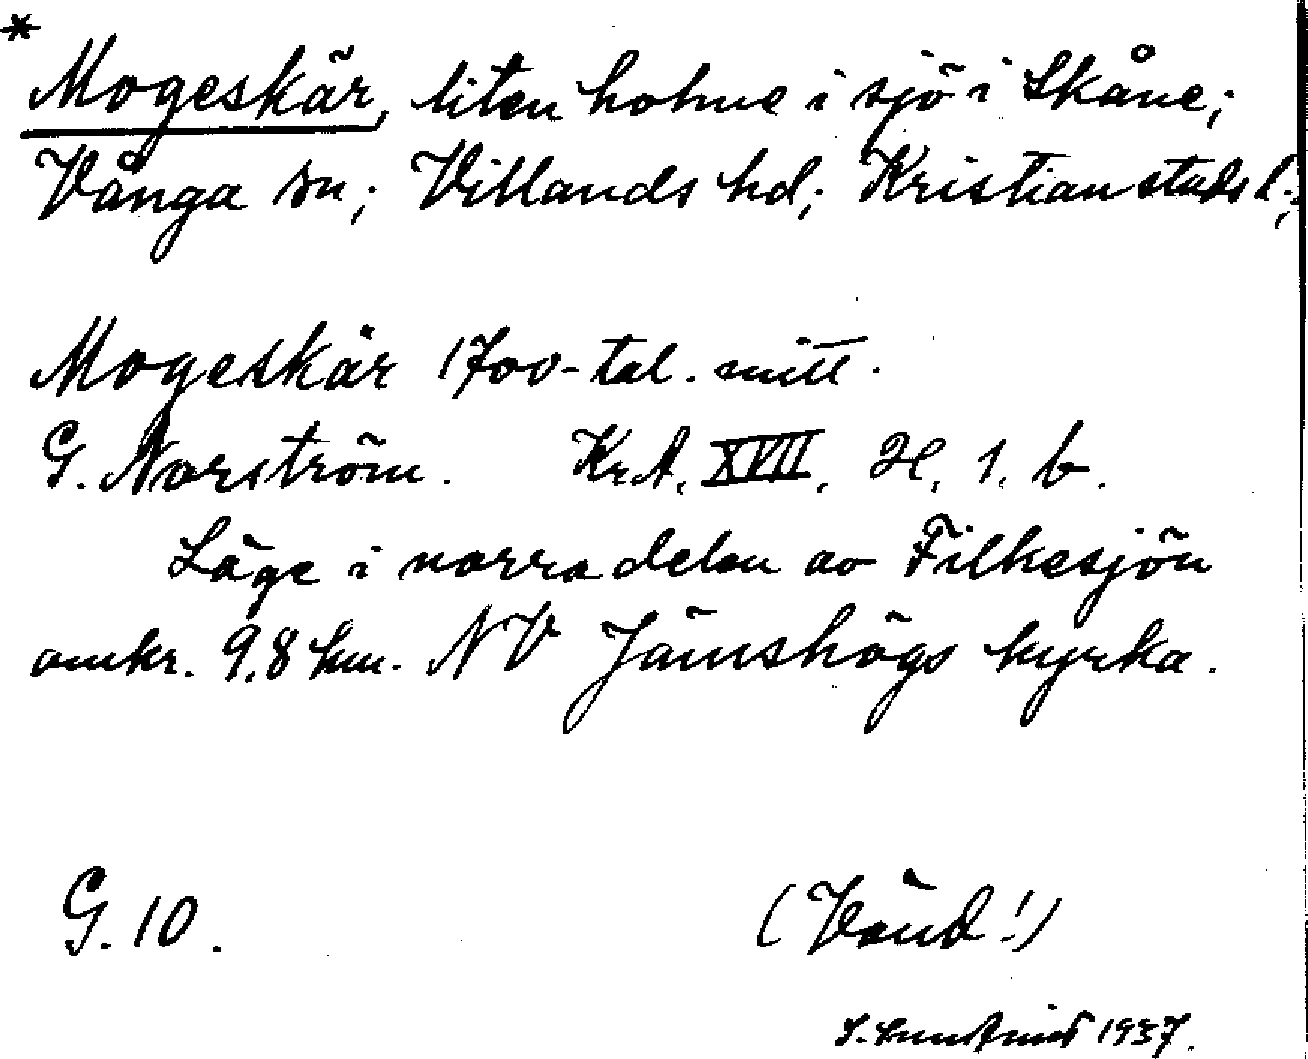 *
Mogeskär, liten holme i sjö i Skåne;
Vånga sn; Villands hd; Kristianstads l.;
Mogeskär 1700-tal. mitt.
G. Norström. Kr.A. XVII. H. 1. b.
Läge i norra delen av Filkesjön
omkr. 9,8 km. NV Jämshögs kyrka.
G. 10. (Vänd!)
1937.